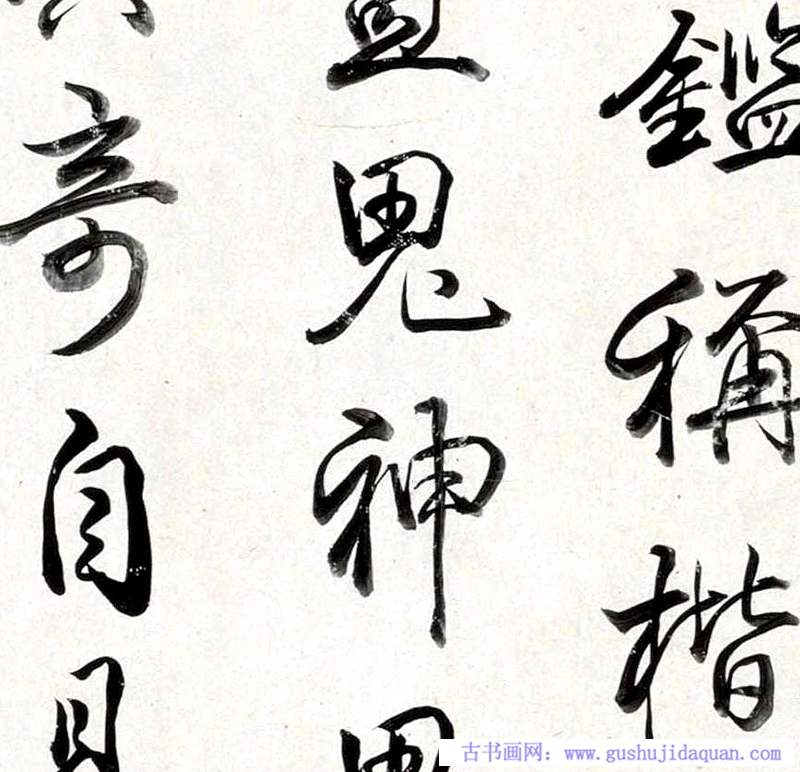 鑑稱楷
鬼神
奇自
古书画网：www.gushujidaquan.com